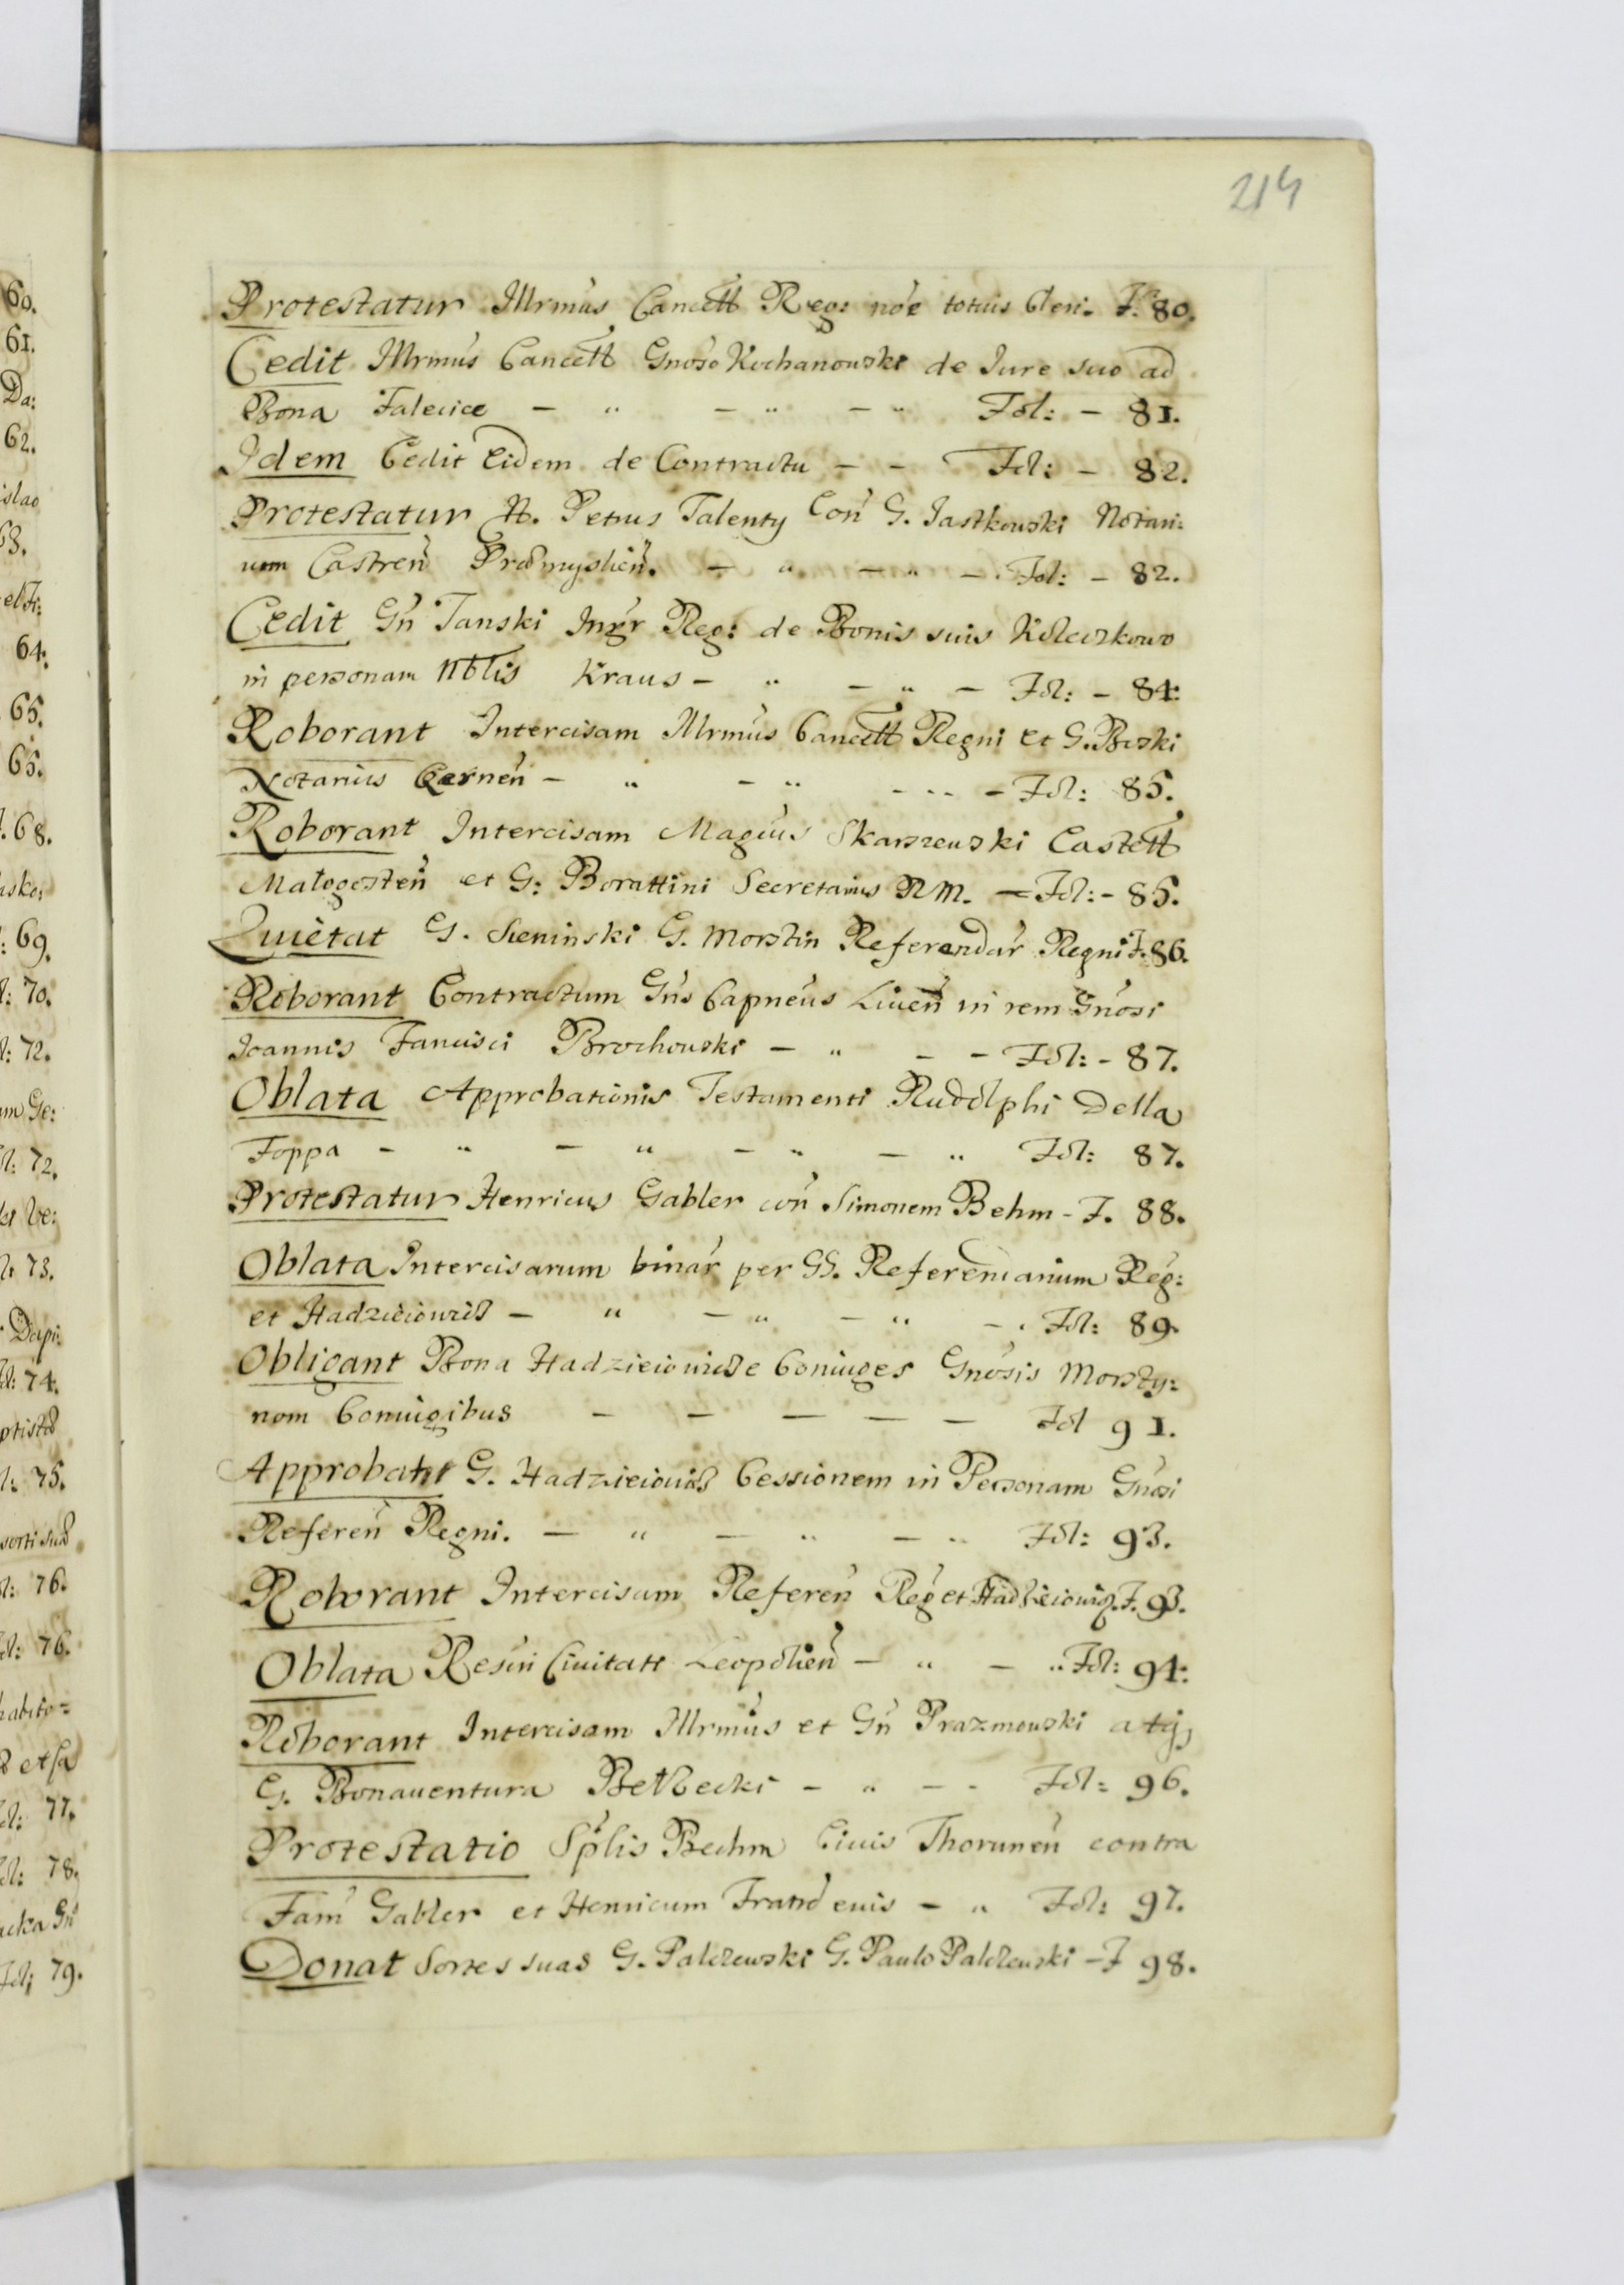 214
60.
61.
Da:
62.
islao
63.
el Fi:
64:
65.
65.
68.
asko:
: 69.
l: 70.
l: 72.
um Ge:
ol: 72.
73.
Dapi:
ol: 74.
ptistæ
l: 75.
sorti suæ
ol: 76.
ol: 76.
habito=
77.
ol: 78.
acka Gn
Fol: 79.
Protestatur Illrmus Cancell Reg: noe totius Cleri. F. 80.
Cedit Illrmus Cancell Gnoso Kochanowski de Iure suo ad
Bona Falecice - " - " - " Fol: - 81.
Idem Cedit Eidem de Contractu - - Fol: - 82.
Protestatur N. Petrus Talenty Con G. Jastkowski Notari:
um Castren Præmyslien. - " - " - Fol: - 82.
Cedit Gn Tanski Reg: de Bonis suis Koleczkowo
in personam Nblis Kraus - " - " - Fol: - 84:
Roborant Intercisam Illrmus Cancell Regni et G.
Notarius - " - " - - - Fol: 85.
Roborant Intercisam Magcus Skarszewski Castell
Małogosten et G: Borattini Secretarius RM. - Fol: - 85.
Quietat G. Sieninski G. Morstin Referendar Regni F. 86.
Roborant Contractum Gns Capneus Liuen in rem Gnosi
Joannis Fancisci Brochowski - " - - Fol: - 87.
Oblata Approbationis Testamenti Rudolphi Della
Foppa - " - " - " - " Fol: 87.
Protestatur Henricus Gabler con Simonem Behm - F. 88.
Oblata Intercisarum binar per GG. Referendarium Reg:
et Hadzieiowicz - " - " - " - . Fol: 89.
Obligant Bona Hadzieiowicze Coniuges Gnosis Morsty:
nom Coniugibus - - - - - Fol 91.
Approbatur G. Hadzieiowicz Cessionem in Personam Gnosi
Referen Regni. - " - " - " Fol: 93.
Roborant Intercisam Referen Reg et Hadzieiowicz. F. 93.
Oblata Resⁱⁿⁱ Ciuitati Leopolien - " - " Fol: 94:
Roborant Intercisam Illrmus et Gn Prazmowski atq,
G. Bonauentura Bełzecki - " - - Fol: 96.
Protestatio Splis Bechm Ciuis Thorunen contra
Fam Gabler et Henricum Fratrē eius - " Fol: 97.
Donat Sortes suas G. Palczewski G. Paulo Palczewski - F 98.